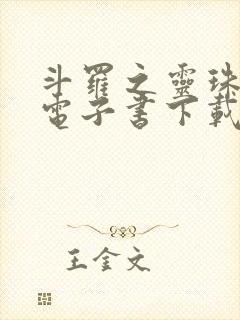 斗羅之靈珠
電子書下載
王金文